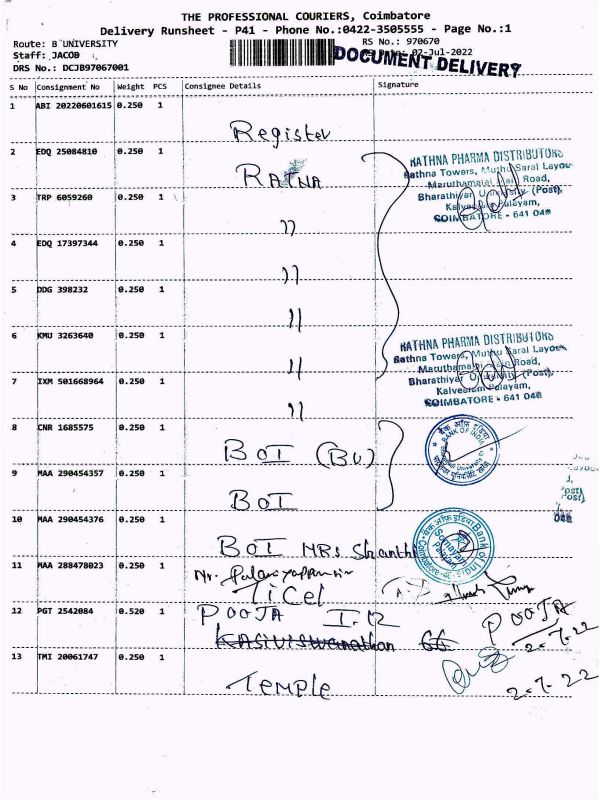 THE PROFESSIONAL COURIERS, Coimbatore
Delivery Runsheet - P41 - Phone No.:0422-3505555 - Page No.:1
Route: B UNIVERSITY
RS No.: 970670
Staff: JACOB
02-Jul-2022
DOCUMENT DELIVERY
DRS No.: DCJB97067001
S No Consignment No Weight PCS Consignee Details Signature
1 ABI 20220601615 0.250 1
Register
2 EDQ 25084810 0.250 1
RATNA
RATHNA PHARMA DISTRIBUTORS
Rathna Towers, Muthu Saral Layou
Maruthamalai Main Road,
Bharathiyar University (Post),
Kalveeram Palayam,
COIMBATORE - 641 046
3 TRP 6059260 0.250 1
"
4 EDQ 17397344 0.250 1
"
5 DDG 398232 0.250 1
"
6 KMU 3263640 0.250 1
"
RATHNA PHARMA DISTRIBUTORS
Rathna Towers, Muthu Saral Layou
Maruthamalai Main Road,
Bharathiyar University (Post),
Kalveeram Palayam,
COIMBATORE - 641 046
7 IXM 501668964 0.250 1
"
8 CNR 1685575 0.250 1
BOI (BU)
बैंक ऑफ़ इंडिया
BANK OF INDIA
9 MAA 290454357 0.250 1
BOI
10 MAA 290454376 0.250 1
BOI MRS Shanthi
बैंक ऑफ़ इंडिया Bank of India
11 MAA 288478023 0.250 1
Mr.
TICEL
12 PGT 2542084 0.520 1
POOJA I.R
66
POOJA
2-7-22
13 TMI 20061747 0.250 1
Temple
2-7-22